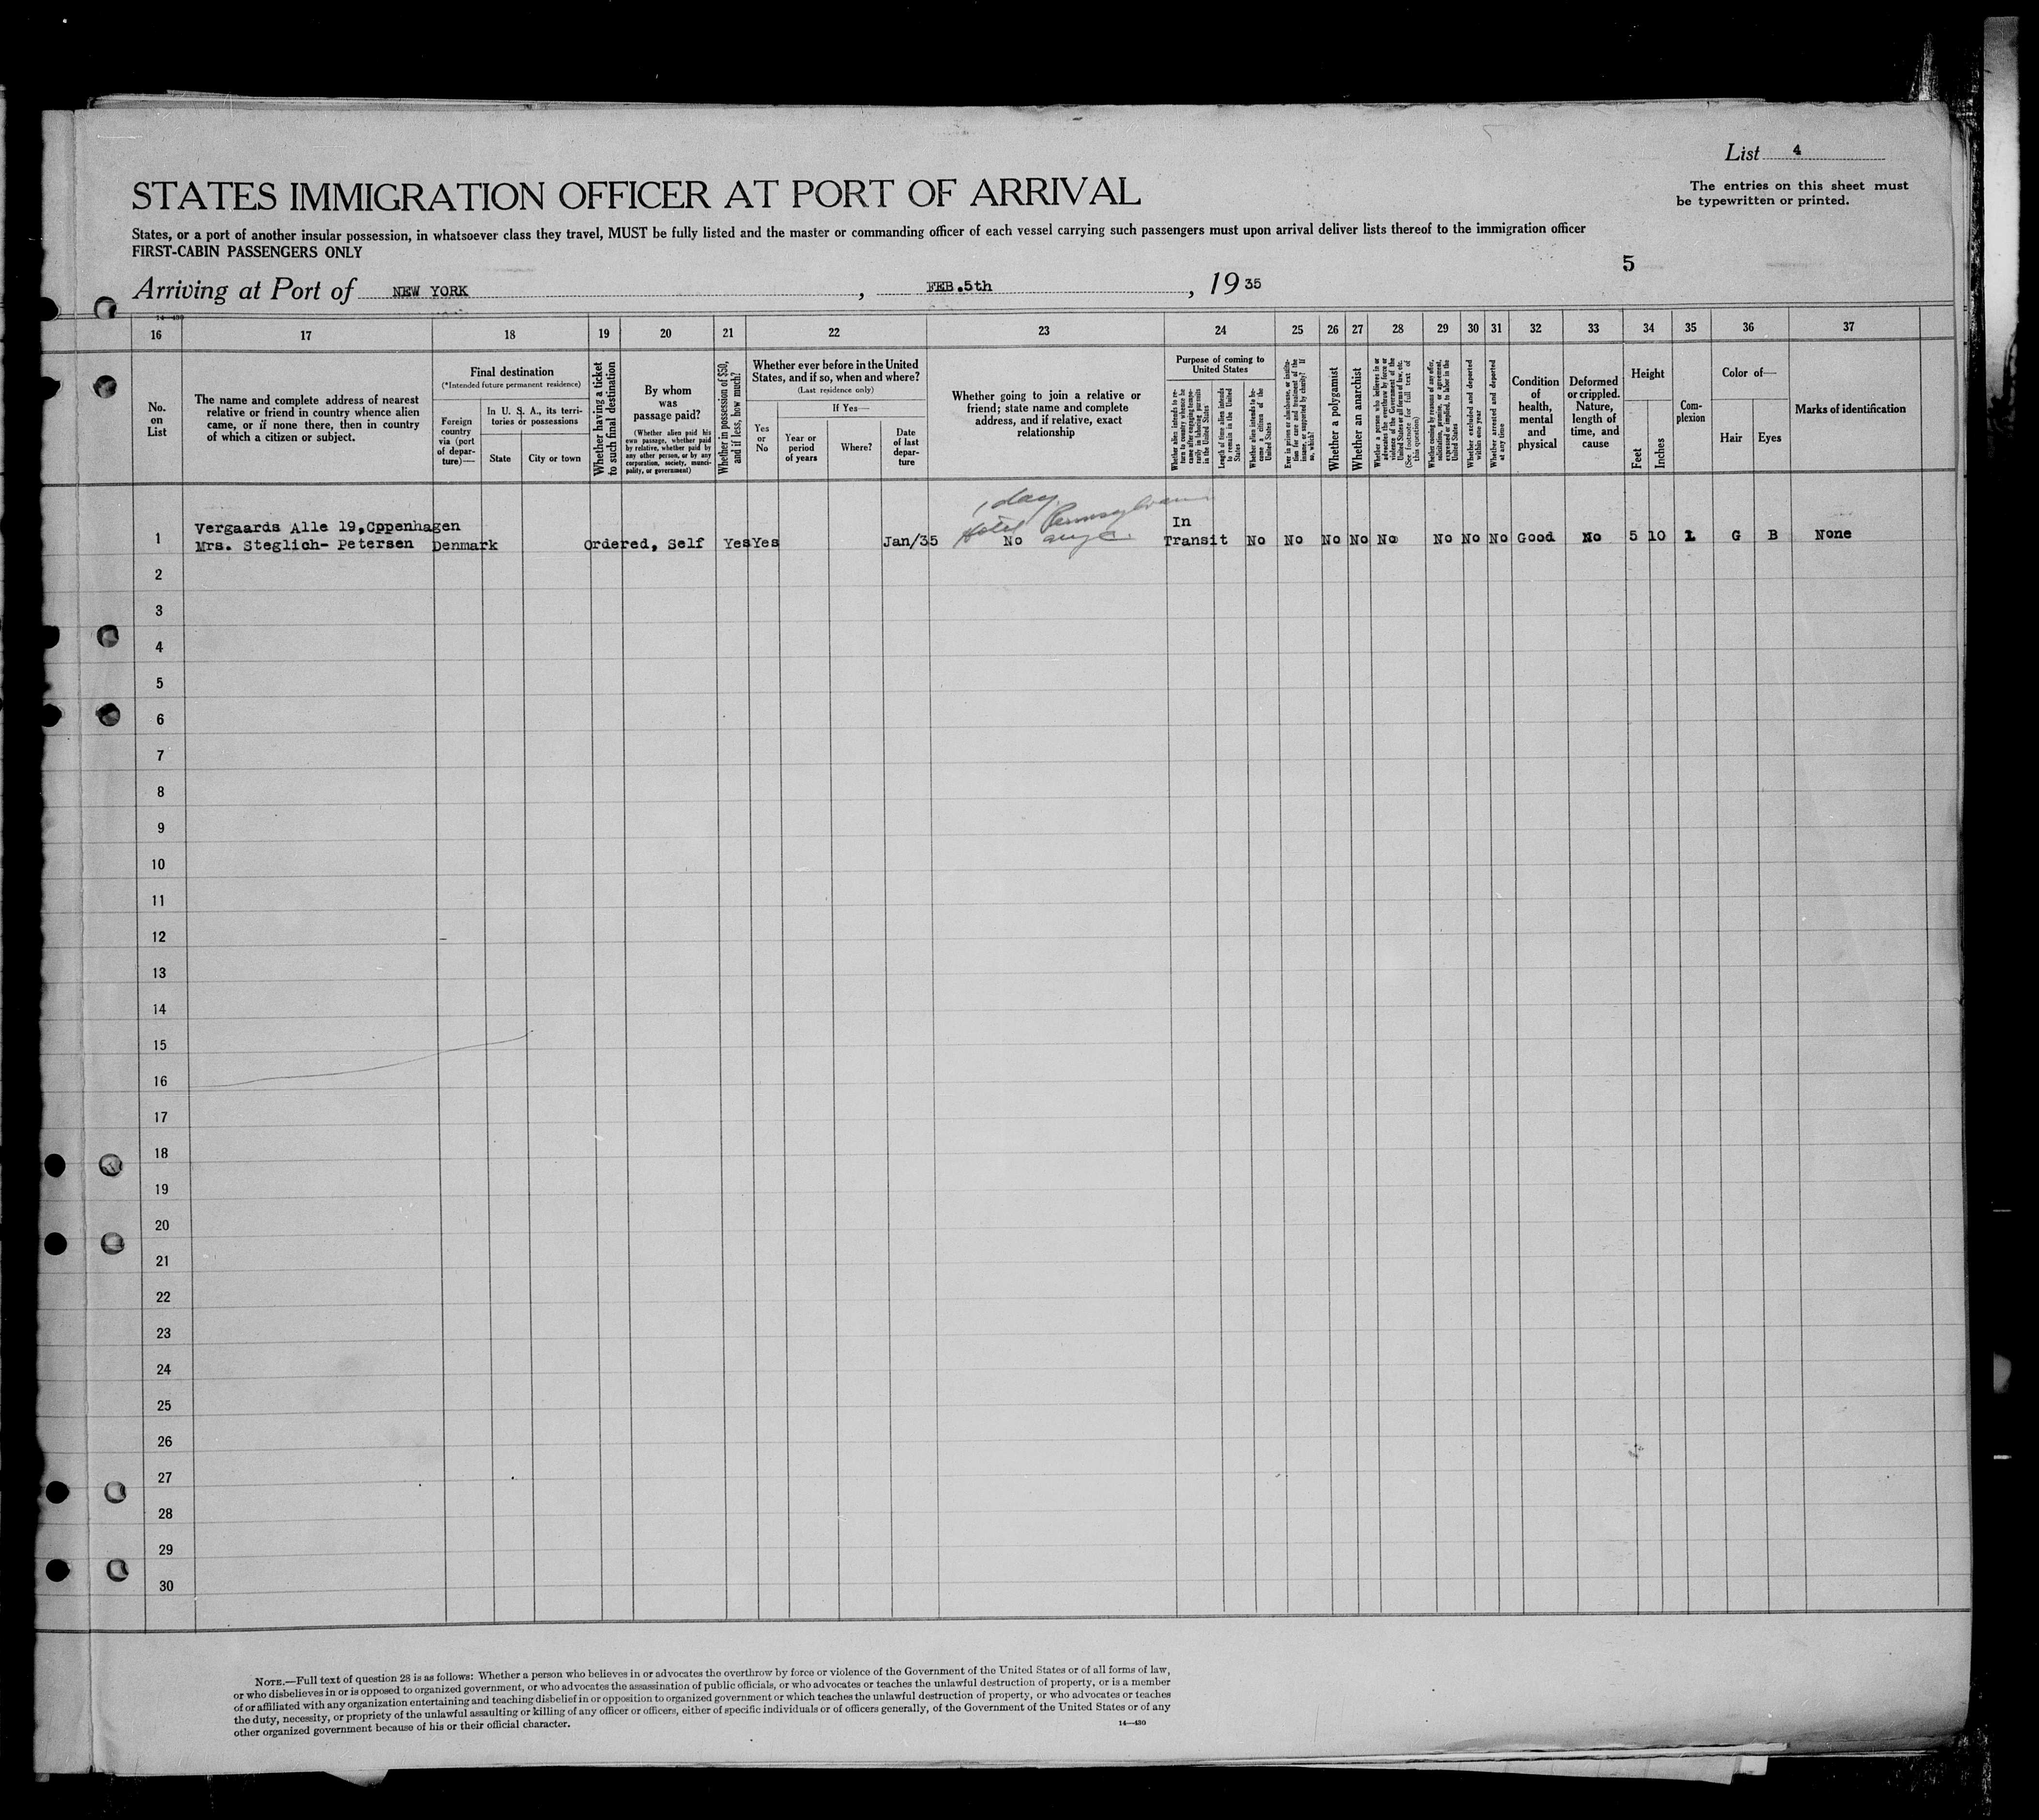 List 4
The entries on this sheet must
be typewritten or printed.
STATES IMMIGRATION OFFICER AT PORT OF ARRIVAL
States, or a port of another insular possession, in whatsoever class they travel, MUST be fully listed and the master or commanding officer of each vessel carrying such passengers must upon arrival deliver lists thereof to the immigration officer
FIRST-CABIN PASSENGERS ONLY
5
Arriving at Port of NEW YORK, FEB.5th, 1935
14—430
16 17 18 19 20 21 22 23 24 25 26 27 28 29 30 31 32 33 34 35 36 37
No.
on
List
The name and complete address of nearest
relative or friend in country whence alien
came, or if none there, then in country
of which a citizen or subject.
Final destination
(*Intended future permanent residence)
Foreign
country
via (port
of depar-
ture)—
In U. S. A., its terri-
tories or possessions
State
City or town
Whether having a ticket
to such final destination
By whom
was
passage paid?
(Whether alien paid his
own passage, whether paid
by relative, whether paid by
any other person, or by any
corporation, society, munci-
pality, or government)
Whether in possession of $50,
and if less, how much?
Whether ever before in the United
States, and if so, when and where?
(Last residence only)
Yes
or
No
If Yes—
Year or
period
of years
Where?
Date
of last
depar-
ture
Whether going to join a relative or
friend; state name and complete
address, and if relative, exact
relationship
Purpose of coming to
United States
Whether alien intends to re-
turn to country whence he
came after engaging tempo-
rarily in laboring pursuits
in the United States
Length of time alien intends
to remain in the United
States
Whether alien intends to be-
come a citizen of the
United States
Ever in prison or almshouse, or institu-
tion for care and treatment of the
insane, or supported by charity? If
so, which?
Whether a polygamist
Whether an anarchist
Whether a person who believes in or
advocates the overthrow by force or
violence of the Government of the
United States or all forms of law, etc.
(See footnote for full text of
this question)
Whether coming by reason of any offer,
solicitation, promise, or agreement,
expressed or implied, to labor in the
United States
Whether excluded and deported
within one year
Whether arrested and deported
at any time
Condition
of
health,
mental
and
physical
Deformed
or crippled.
Nature,
length of
time, and
cause
Height
Feet
Inches
Com-
plexion
Color of—
Hair
Eyes
Marks of identification
1 day
Hotel Pennsylvania
Vergaards Alle 19,Cppenhagen In
1 Mrs. Steglich- Petersen Denmark Ordered, Self Yes Yes Jan/35 No Transit No No No No No No No No Good No 5 10 L G B None
2
3
4
5
6
7
8
9
10
11
12
13
14
15
16
17
18
19
20
21
22
23
24
25
26
27
28
29
30
NOTE.—Full text of question 28 is as follows: Whether a person who believes in or advocates the overthrow by force or violence of the Government of the United States or of all forms of law,
or who disbelieves in or is opposed to organized government, or who advocates the assassination of public officials, or who advocates or teaches the unlawful destruction of property, or is a member
of or affiliated with any organization entertaining and teaching disbelief in or opposition to organized government or which teaches the unlawful destruction of property, or who advocates or teaches
the duty, necessity, or propriety of the unlawful assaulting or killing of any officer or officers, either of specific individuals or of officers generally, of the Government of the United States or of any
other organized government because of his or their official character.
14—430